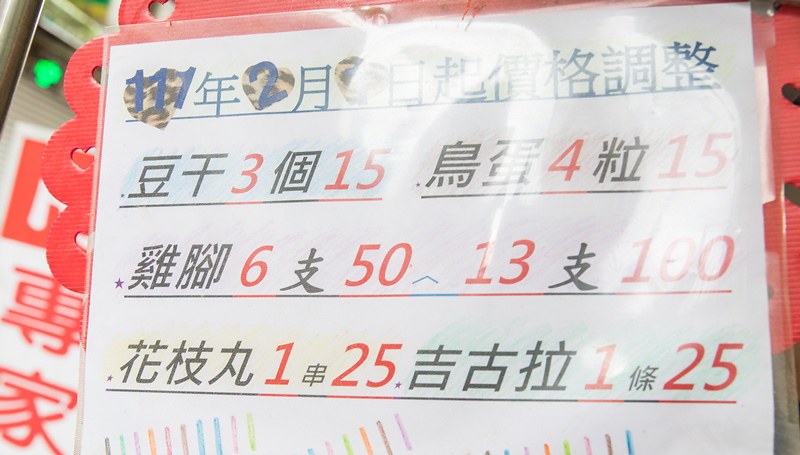 111年2月 日起價格調整
豆干3個15 鳥蛋4粒15
雞腳6支50 13支100
花枝丸1串25 吉古拉1條25
專家